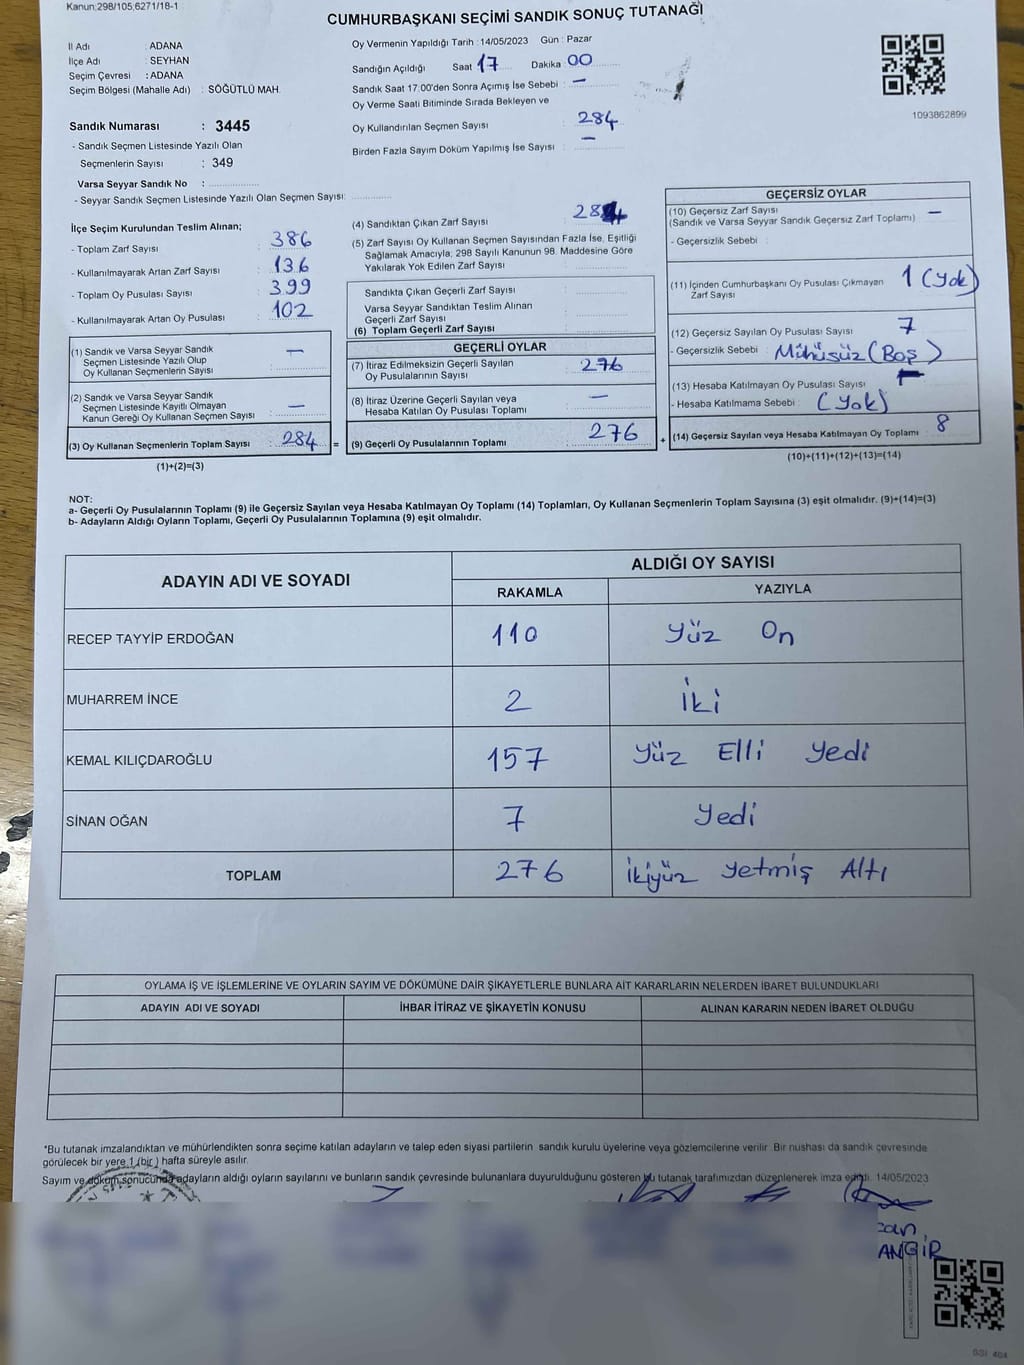 Kanun:298/105,6271/18-1
CUMHURBAŞKANI SEÇİMİ SANDIK SONUÇ TUTANAĞI
İl Adı : ADANA
İlçe Adı : SEYHAN
Seçim Çevresi : ADANA
Seçim Bölgesi (Mahalle Adı) : SÖĞÜTLÜ MAH.
Oy Vermenin Yapıldığı Tarih : 14/05/2023 Gün : Pazar
Sandığın Açıldığı Saat 17 Dakika 00
Sandık Saat 17:00'den Sonra Açımış İse Sebebi : —
Oy Verme Saati Bitiminde Sırada Bekleyen ve
Oy Kullandırılan Seçmen Sayısı : 284
Birden Fazla Sayım Döküm Yapılmış İse Sayısı : —
1093862899
Sandık Numarası : 3445
- Sandık Seçmen Listesinde Yazılı Olan
Seçmenlerin Sayısı : 349
Varsa Seyyar Sandık No :
- Seyyar Sandık Seçmen Listesinde Yazılı Olan Seçmen Sayısı:
İlçe Seçim Kurulundan Teslim Alınan;
- Toplam Zarf Sayısı : 386
- Kullanılmayarak Artan Zarf Sayısı : 136
- Toplam Oy Pusulası Sayısı : 399
- Kullanılmayarak Artan Oy Pusulası : 102
(1) Sandık ve Varsa Seyyar Sandık
Seçmen Listesinde Yazılı Olup
Oy Kullanan Seçmenlerin Sayısı : —
(2) Sandık ve Varsa Seyyar Sandık
Seçmen Listesinde Kayıtlı Olmayan
Kanun Gereği Oy Kullanan Seçmen Sayısı : —
(3) Oy Kullanan Seçmenlerin Toplam Sayısı : 284 =
(1)+(2)=(3)
(4) Sandıktan Çıkan Zarf Sayısı : 284
(5) Zarf Sayısı Oy Kullanan Seçmen Sayısından Fazla İse, Eşitliği
Sağlamak Amacıyla; 298 Sayılı Kanunun 98. Maddesine Göre
Yakılarak Yok Edilen Zarf Sayısı :
Sandıkta Çıkan Geçerli Zarf Sayısı :
Varsa Seyyar Sandıktan Teslim Alınan
Geçerli Zarf Sayısı :
(6) Toplam Geçerli Zarf Sayısı :
GEÇERLİ OYLAR
(7) İtiraz Edilmeksizin Geçerli Sayılan
Oy Pusulalarının Sayısı : 276
(8) İtiraz Üzerine Geçerli Sayılan veya
Hesaba Katılan Oy Pusulası Toplamı : —
(9) Geçerli Oy Pusulalarının Toplamı : 276 +
GEÇERSİZ OYLAR
(10) Geçersiz Zarf Sayısı : —
(Sandık ve Varsa Seyyar Sandık Geçersiz Zarf Toplamı)
- Geçersizlik Sebebi :
(11) İçinden Cumhurbaşkanı Oy Pusulası Çıkmayan 1 (Yok)
Zarf Sayısı
(12) Geçersiz Sayılan Oy Pusulası Sayısı : 7
- Geçersizlik Sebebi : Mühüsüz (Boş)
(13) Hesaba Katılmayan Oy Pusulası Sayısı :
- Hesaba Katılmama Sebebi : (Yok)
(14) Geçersiz Sayılan veya Hesaba Katılmayan Oy Toplamı : 8
(10)+(11)+(12)+(13)=(14)
NOT:
a- Geçerli Oy Pusulalarının Toplamı (9) ile Geçersiz Sayılan veya Hesaba Katılmayan Oy Toplamı (14) Toplamları, Oy Kullanan Seçmenlerin Toplam Sayısına (3) eşit olmalıdır. (9)+(14)=(3)
b- Adayların Aldığı Oyların Toplamı, Geçerli Oy Pusulalarının Toplamına (9) eşit olmalıdır.
ADAYIN ADI VE SOYADI ALDIĞI OY SAYISI
RAKAMLA YAZIYLA
RECEP TAYYİP ERDOĞAN 110 Yüz On
MUHARREM İNCE 2 İki
KEMAL KILIÇDAROĞLU 157 Yüz Elli Yedi
SİNAN OĞAN 7 Yedi
TOPLAM 276 İkiyüz Yetmiş Altı
OYLAMA İŞ VE İŞLEMLERİNE VE OYLARIN SAYIM VE DÖKÜMÜNE DAİR ŞİKAYETLERLE BUNLARA AİT KARARLARIN NELERDEN İBARET BULUNDUKLARI
ADAYIN ADI VE SOYADI İHBAR İTİRAZ VE ŞİKAYETİN KONUSU ALINAN KARARIN NEDEN İBARET OLDUĞU
*Bu tutanak imzalandıktan ve mühürlendikten sonra seçime katılan adayların ve talep eden siyasi partilerin sandık kurulu üyelerine veya gözlemcilerine verilir. Bir nushası da sandık çevresinde
görülecek bir yere 1 (bir ) hafta süreyle asılır.
Sayım ve döküm sonucunda adayların aldığı oyların sayılarını ve bunların sandık çevresinde bulunanlara duyurulduğunu gösteren bu tutanak tarafımızdan düzenlenerek imza edildi. 14/05/2023
can
ANGİR